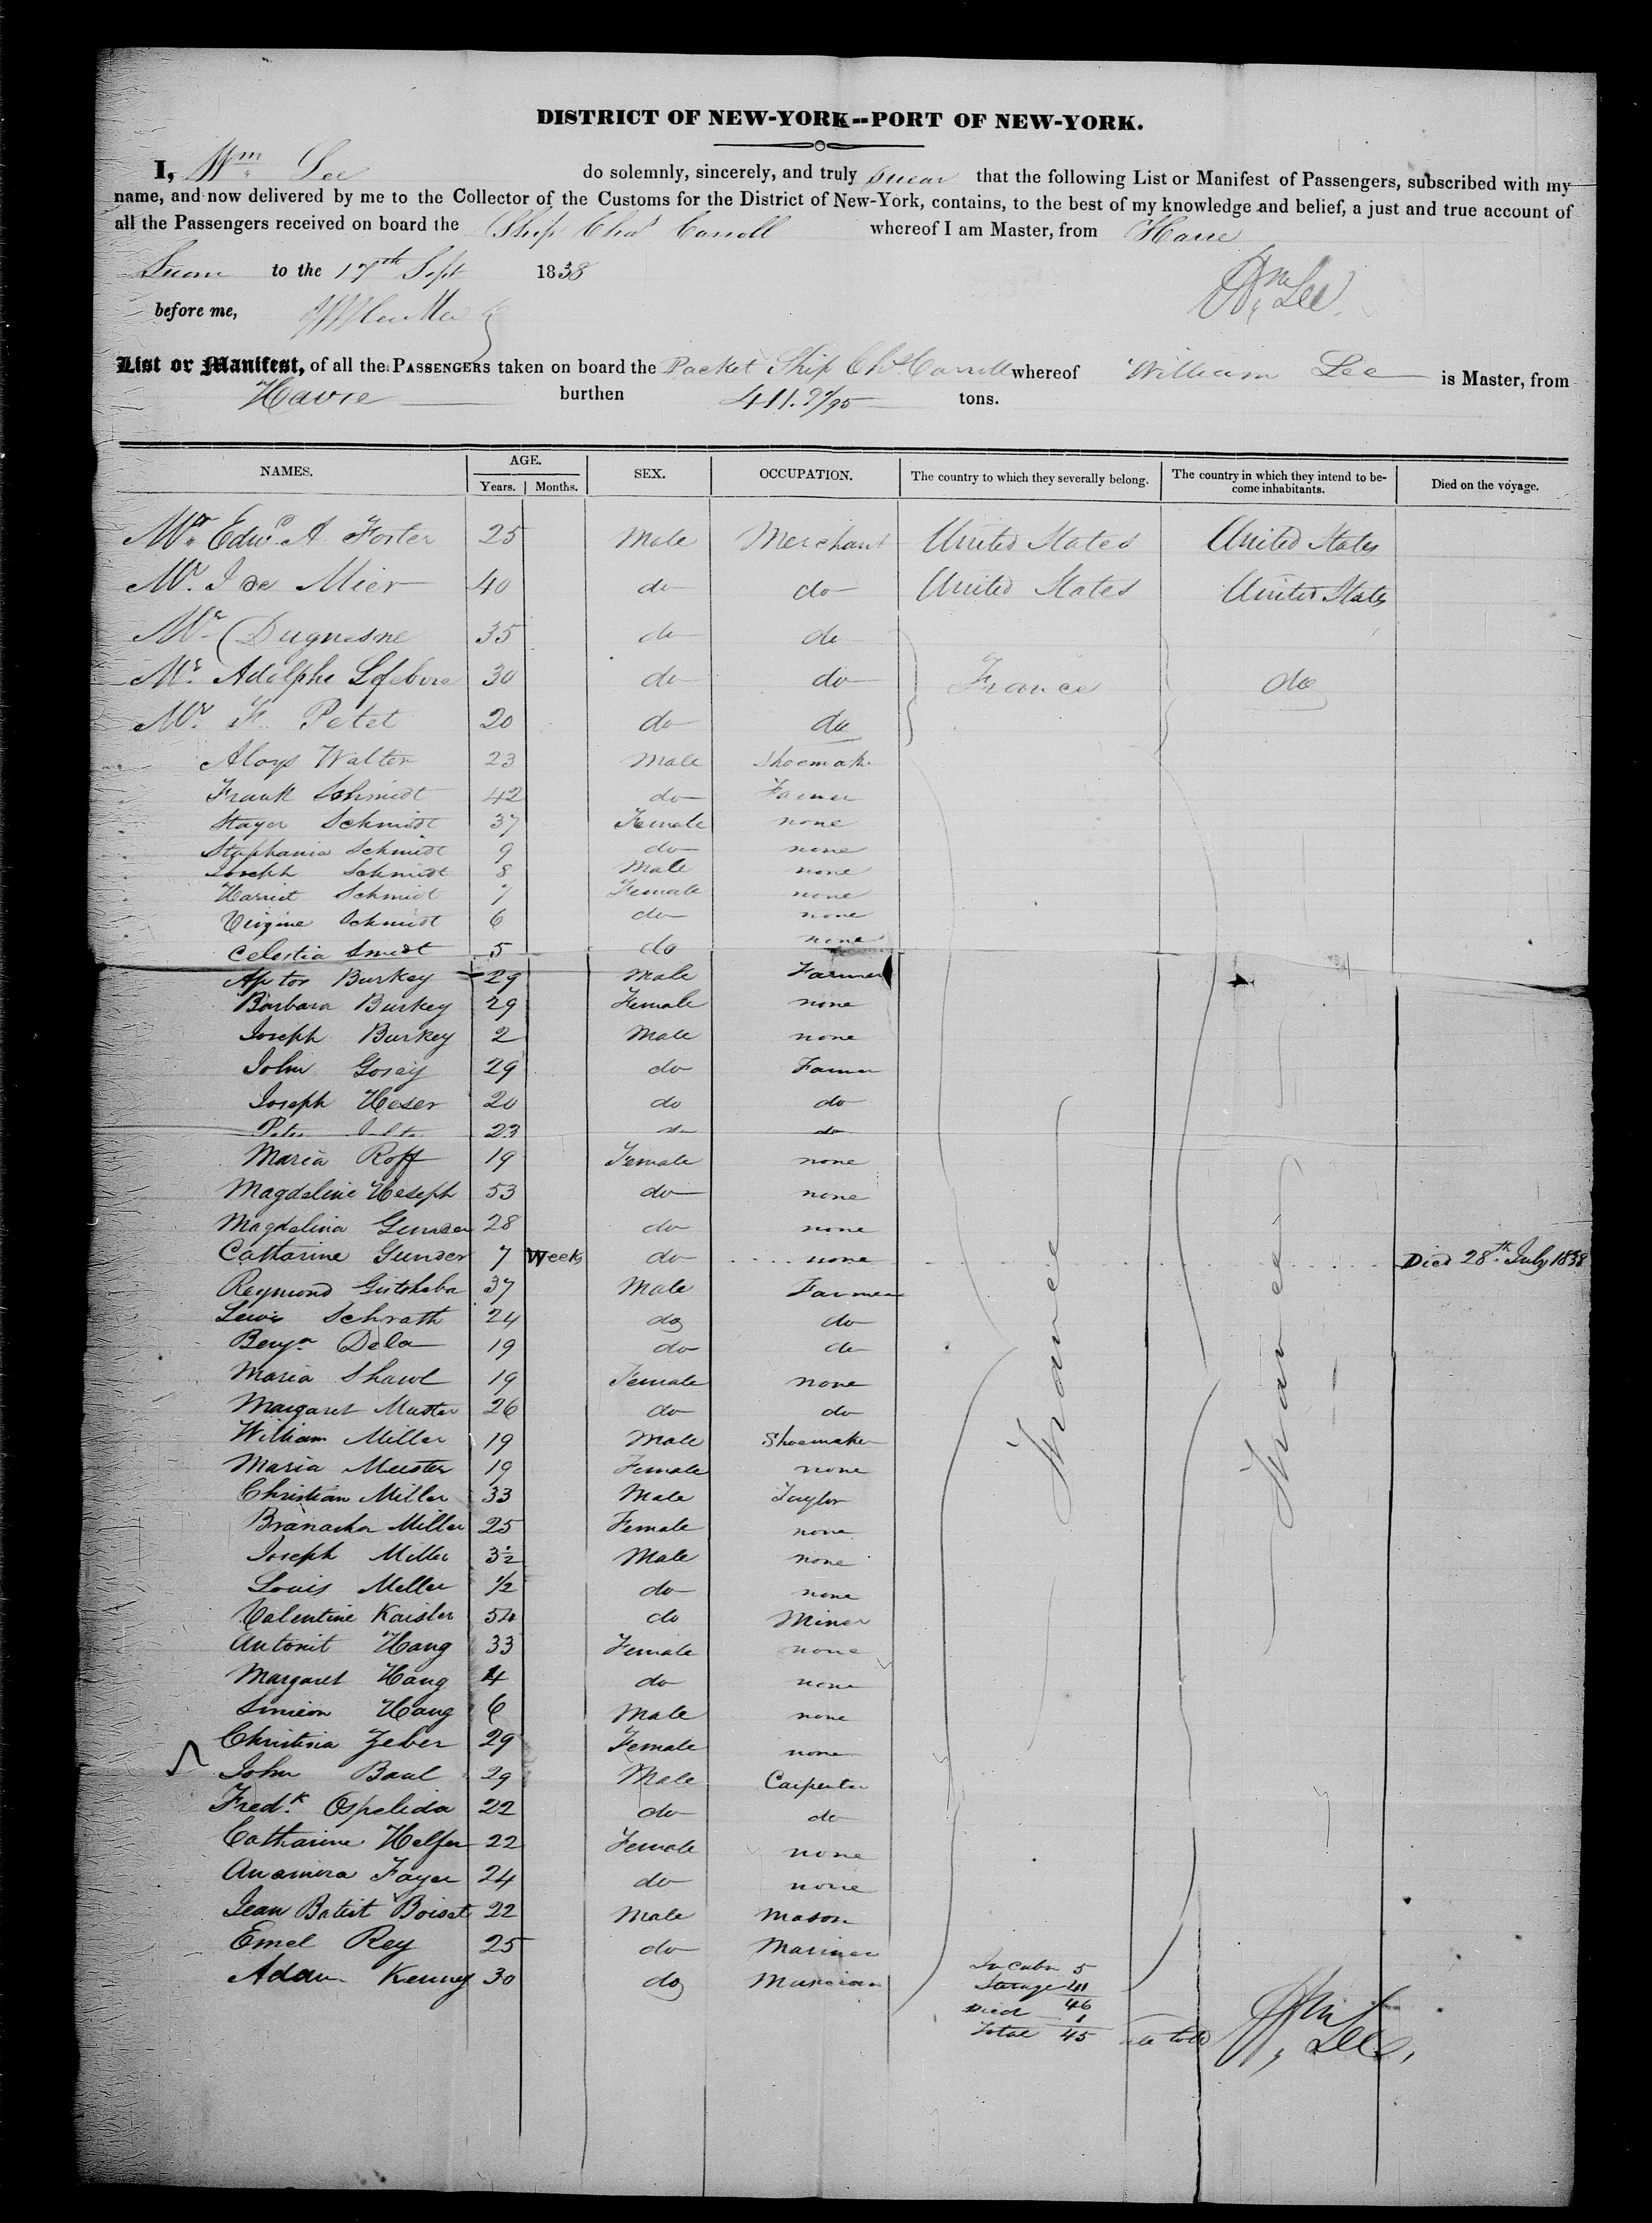 DISTRICT OF NEW-YORK--PORT OF NEW-YORK.
I, Wm Lee do solemnly, sincerely, and truly swear that the following List or Manifest of Passengers, subscribed with my
name, and now delivered by me to the Collector of the Customs for the District of New-York, contains, to the best of my knowledge and belief, a just and true account of
all the Passengers received on board the Ship Chas Carroll whereof I am Master, from Havre
Sworn to the 17th Sept 1838
Wm Lee
before me,
List or Manifest, of all the PASSENGERS taken on board the Packet Ship Chs. Carroll whereof William Lee is Master, from
Havre burthen 411. 97/95 tons.
NAMES. AGE. Years. Months. SEX. OCCUPATION. The country to which they severally belong. The country in which they intend to become inhabitants. Died on the voyage.
Mr. Edwd. A Foster 25 Male Merchant United States United States
Mr. J de Mier 40 do do United States United States
Mr Duquesne 35 do do
Mr. Adolphe Lefebvre 30 do do France do
Mr. F. Petet 20 do do
Aloys Walter 23 Male Shoemak
Frank Schmidt 42 do Farmer
Stayer Schmidt 37 Female none
Stephania Schmidt 9 do none
Joseph Schmidt 8 Male none
Harriet Schmidt 7 Female none
Virgine Schmidt 6 do none
Celestia Smidt 5 do none
Aptor Burkey 29 Male Farmer
Barbara Burkey 29 Female none
Joseph Burkey 2 Male none
John Gosey 29 do Farmer
Joseph Heser 20 do do
Peter 23 do do
Maria Roff 19 Female none
Magdeline Heseph 53 do none
Magdelina Gunder 28 do none
Catharine Gunder 7 Weeks do none Died 28th July 1838
Reymond Gutshaba 37 Male Farmer
Lewis Schrath 24 do do
Benjn Dela 19 do do
Maria Shawl 19 Female none
Margaret Muster 26 do do
William Miller 19 Male Shoemaker
Maria Meester 19 Female none
Christian Miller 33 Male Taylor
Branacka Miller 25 Female none
Joseph Miller 3½ Male none
Louis Miller ½ do none
Valentine Kaisler 54 do Miner
Antonit Hang 33 Female none
Margaret Hang 4 do none
Simeon Hang 6 Male none
Christina Zeber 29 Female none
John Baul 29 Male Carpenter
Fredk. Ospelida 22 do do
Catharine Helfer 22 Female none
Anamira Fayer 24 do none
Jean Batist Boisat 22 Male Mason
Emel Rey 25 do Mariner
Adam Kenney 30 do Musician
France
France
In Cabin 5
Sterage 41
46
Died 1
Total 45 told
Wm Lee,